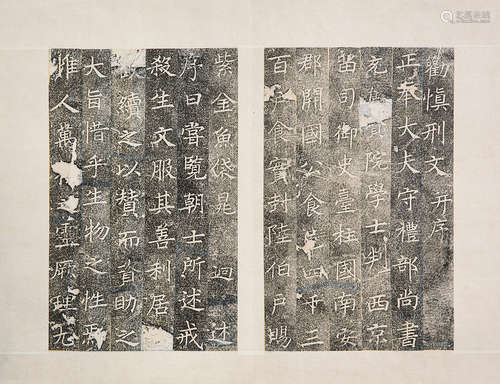 勸慎刑文 并序
正奉大夫守禮部尚書
充集院學士判西京
留司御史臺柱國南安
郡開國公食邑四千三
百戶食實封陸伯戶賜
紫金魚袋晁 迥 述
序曰嘗覽朝士所述戒
殺生文服其善利居
續之以贊而資助之
大旨惜乎生物之性焉
惟人萬之靈厥理